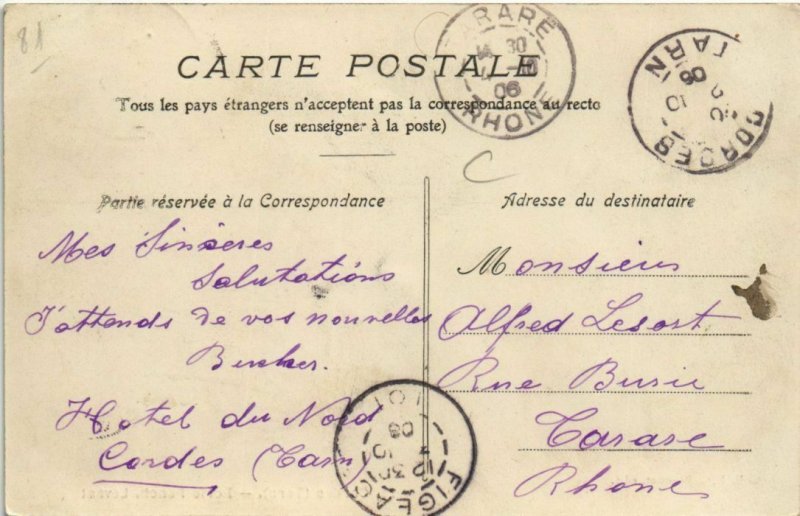 81
CARTE POSTALE
Tous les pays étrangers n'acceptent pas la correspondance au recto
(se renseigner à la poste)
TARARE
30
06
RHONE
CORDES
TARN
10
08
Partie réservée à la Correspondance
Mes Sincères
Salutations
J'attends de vos nouvelles
Hotel du Nord
Cordes (Tarn)
Adresse du destinataire
Monsieur
Alfred Lesort
Rue
Tarare
Rhone
FIGEAC
LOT
30
10